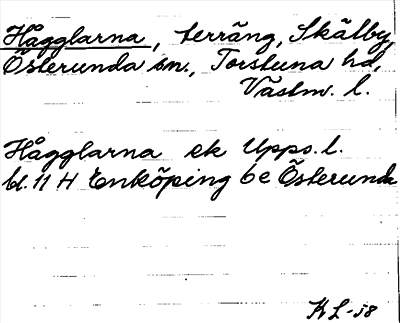 Hågglarna, terräng, Skälby,
Österunda sn., Torstuna hd,
Västm. l.
Hågglarna ek Upps. l.
bl. 11 H Enköping 6e Österunda
KL-58